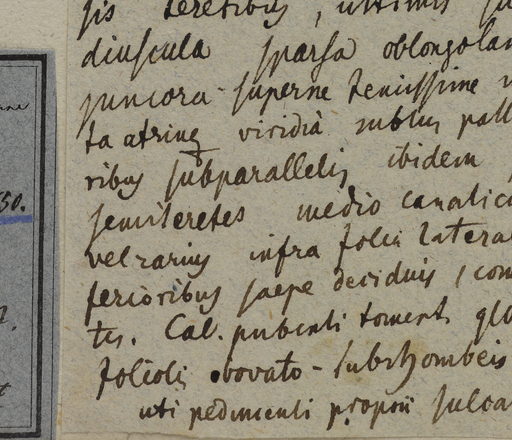 sis teretibus, ultimis
diuscula sparsa oblongolan
juniora superne tenuissime
ta atrinq viridia subtus pall
ribus subparallelis ibidem
semiteretes medio canalic
vel rarius infra folia latera
ferioribus saepe deciduis, com
tis. Cal. pubenti toment. glo
foliolis obovato-subrhombeis
uti pedunculi proprii sulca
50.